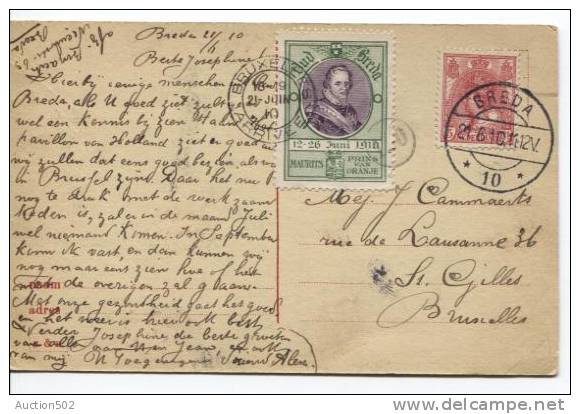 Breda 21/6 10
Beste Josephine!
Hierbij eenige menschen
Breda, als U goed ziet zult
wel een kennis bij zien
pavillon van Holland ziet er goed
zullen dat eens goed
in Brussel zijn. Daar het nu
nog te druk met de werkzaam
heden is, zal er in de maand Juli
wel niemand komen. In September
kom ik vast, en dan kunnen wij
nog maar eens zien hoe of het
de overigen zal gaan.
Met onze gezondheid gaat het goed
en het weer is hier ook best
Verder Josephine de beste groeten
van alle aan Jean en ook
van mij
naam
adres
Oud Breda
12-26 Juni 1910
MAURITS PRINS VAN ORANJE
BRUXELLES
18-19
21 JUIN
10
BREDA
21.6.10.11-12V.
* 10 *
Mej. J. Cammaerts
rue de Lausanne 36
St. Gilles
Bruxelles
Auction502
http://www.delcampe.net